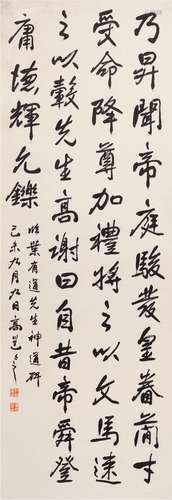 乃昇聞帝庭駿發皇眷簡才
受命降尊加禮將之以文馬速
之以轂先生高謝曰自昔帝舜登
庸德輝允鑠
臨葉有道先生神道碑
己未九月九日高邕之